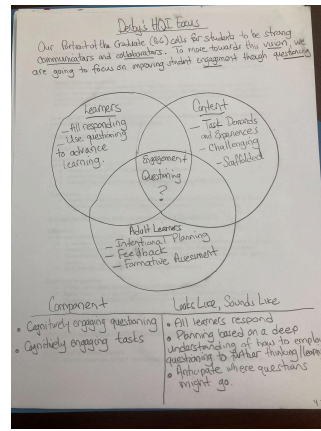 Derby's HQI Focus
Our Portrait of the Graduate (PoG) calls for students to be strong
communicators and collaborators. To move towards this vision, we
are going to focus on improving student engagement though questioning
Learners
- All responding
Use questioning
to advance
learning.
Content
- Task Demands
and Experiences
- Challenging
- Scaffolded
Engagement
Questioning
?
Adult Learners
- Intentional Planning
- Feedback
- Formative Assessment
Component
• Cognitively engaging questioning
• Cognitively engaging tasks
Looks Like, Sounds Like
• All learners respond
• Planning based on a deep
understanding of how to employ
questioning to further thinking/learn
• Anticipate where questions
might go.